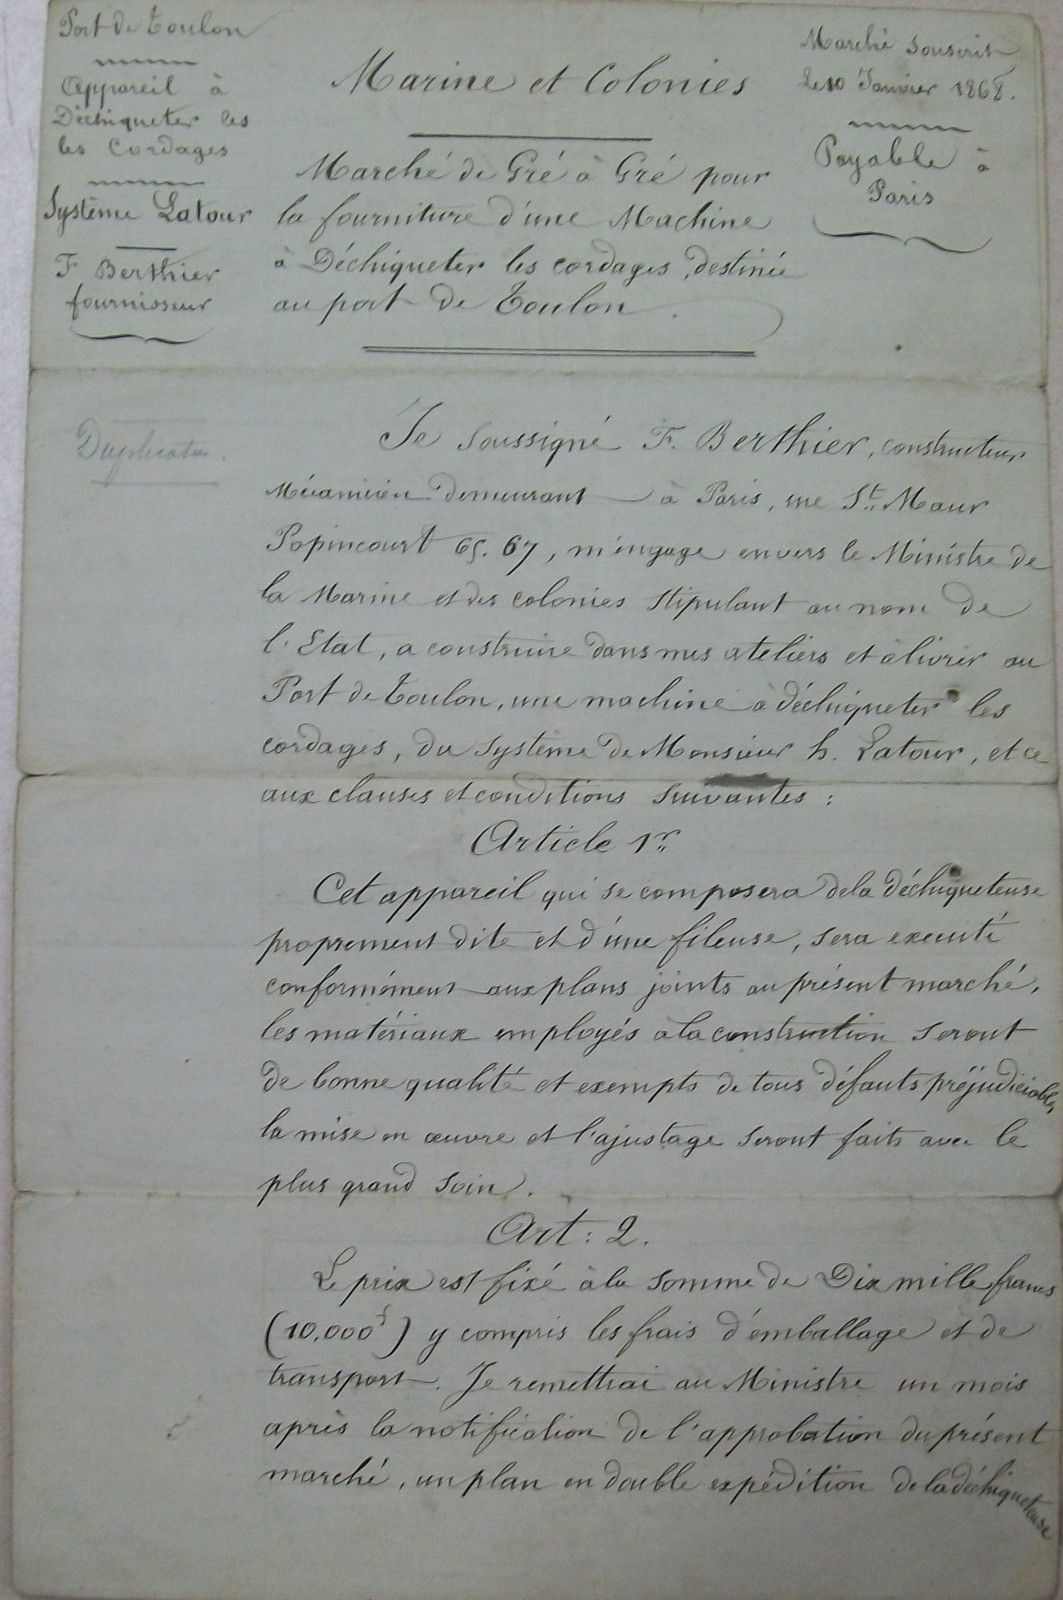 Port de Toulon
Appareil à
Déchiqueter les
les Cordages
Système Latour
F. Berthier
fournisseur
Marine et Colonies
Marché de Gré à Gré pour
la fourniture d'une Machine
à Déchiqueter les cordages, destinée
au port de Toulon.
Marché souscrit
le 10 Janvier 1868.
Payable à
Paris
Duplicata.
Je soussigné F. Berthier, constructeur
Mécanicien demeurant à Paris, rue St. Maur
Popincourt 65. 67, m'engage envers le Ministre de
la Marine et des colonies stipulant au nom de
l'Etat, a construire dans mes ateliers et à livrer au
Port de Toulon, une machine à déchiqueter les
cordages, du système de Monsieur h. Latour, et ce
aux clauses et conditions suivantes :
Article 1er
Cet appareil qui se composera de la déchiqueteuse
proprement dite et d'une fileuse, sera executé
conformément aux plans joints au présent marché,
les matériaux employés a la construction seront
de bonne qualité et exempts de tous défauts préjudiciables
la mise en œuvre et l'ajustage seront faits avec le
plus grand soin.
Art : 2.
Le prix est fixé à la somme de Dix mille francs
(10.000f) y compris les frais d'emballage et de
transport. Je remettrai au Ministre un mois
après la notification de l'approbation du présent
marché, un plan en double expédition de la déchiqueteuse